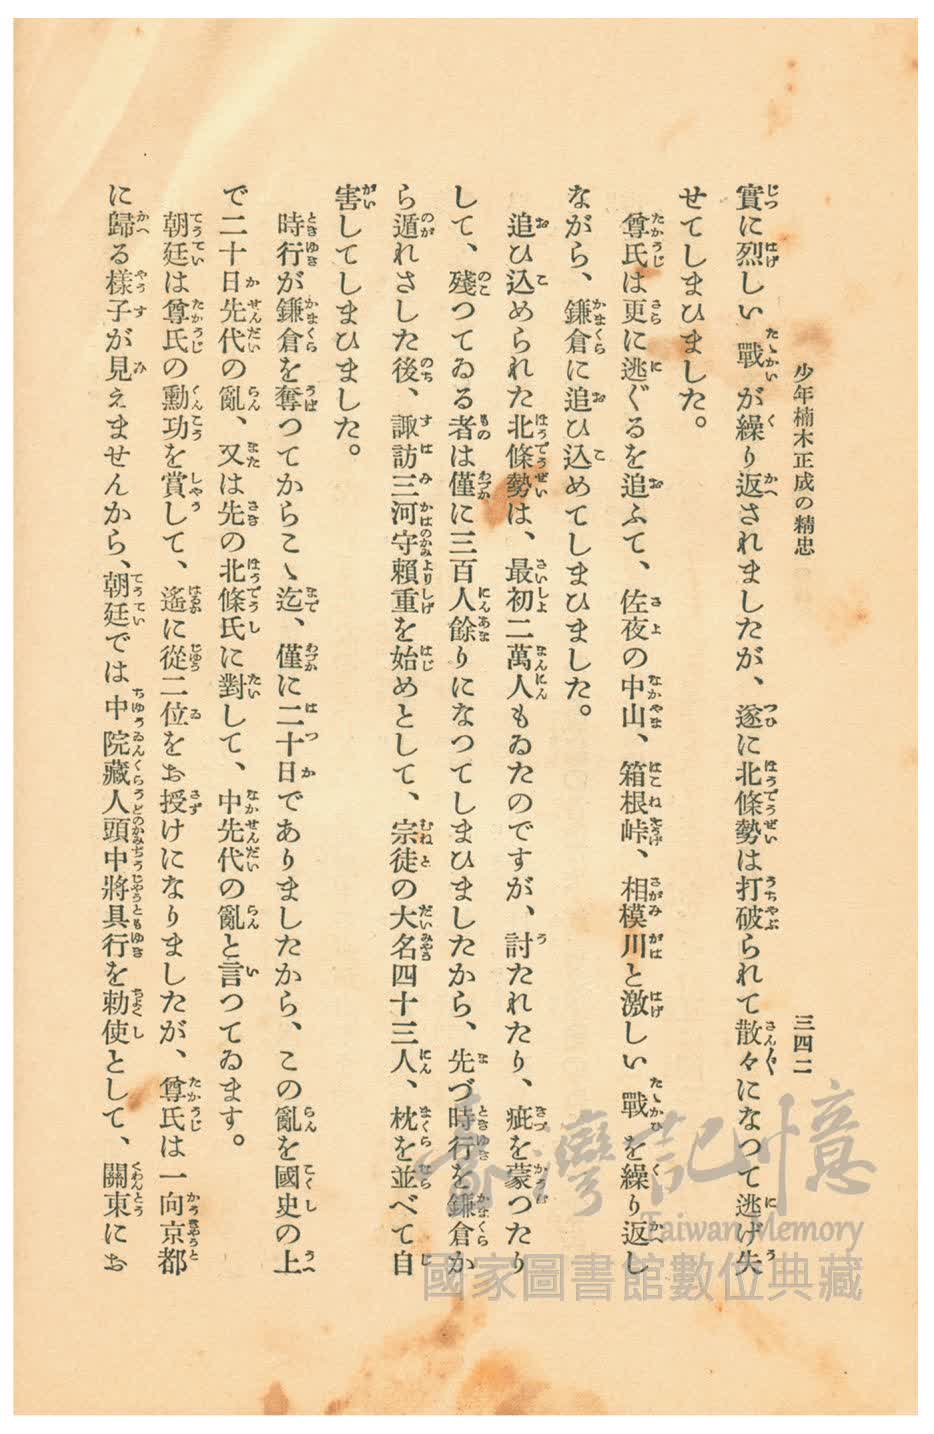 少年楠木正成の精忠
三四二
實に烈しい戰が繰り返されましたが、遂に北條勢は打破られて散々になつて逃げ失
せてしまひました。
尊氏は更に逃ぐるを追ふて、佐夜の中山、箱根峠、相模川と激しい戰を繰り返し
ながら、鎌倉に追ひ込めてしまひました。
追ひ込められた北條勢は、最初二萬人もゐたのですが、討たれたり、疵を蒙つたり
して、殘つてゐる者は僅に三百人餘りになつてしまひましたから、先づ時行を鎌倉か
ら遁れさした後、諏訪三河守賴重を始めとして、宗徒の大名四十三人、枕を並べて自
害してしまひました。
時行が鎌倉を奪つてからこゝ迄、僅に二十日でありましたから、この亂を國史の上
で二十日先代の亂、又は先の北條氏に對して、中先代の亂と言つてゐます。
朝廷は尊氏の勳功を賞して、遙に從二位をお授けになりましたが、尊氏は一向京都
に歸る樣子が見えませんから、朝廷では中院藏人頭中將具行を勅使として、關東にお
臺灣記憶
Taiwan Memory
國家圖書館數位典藏